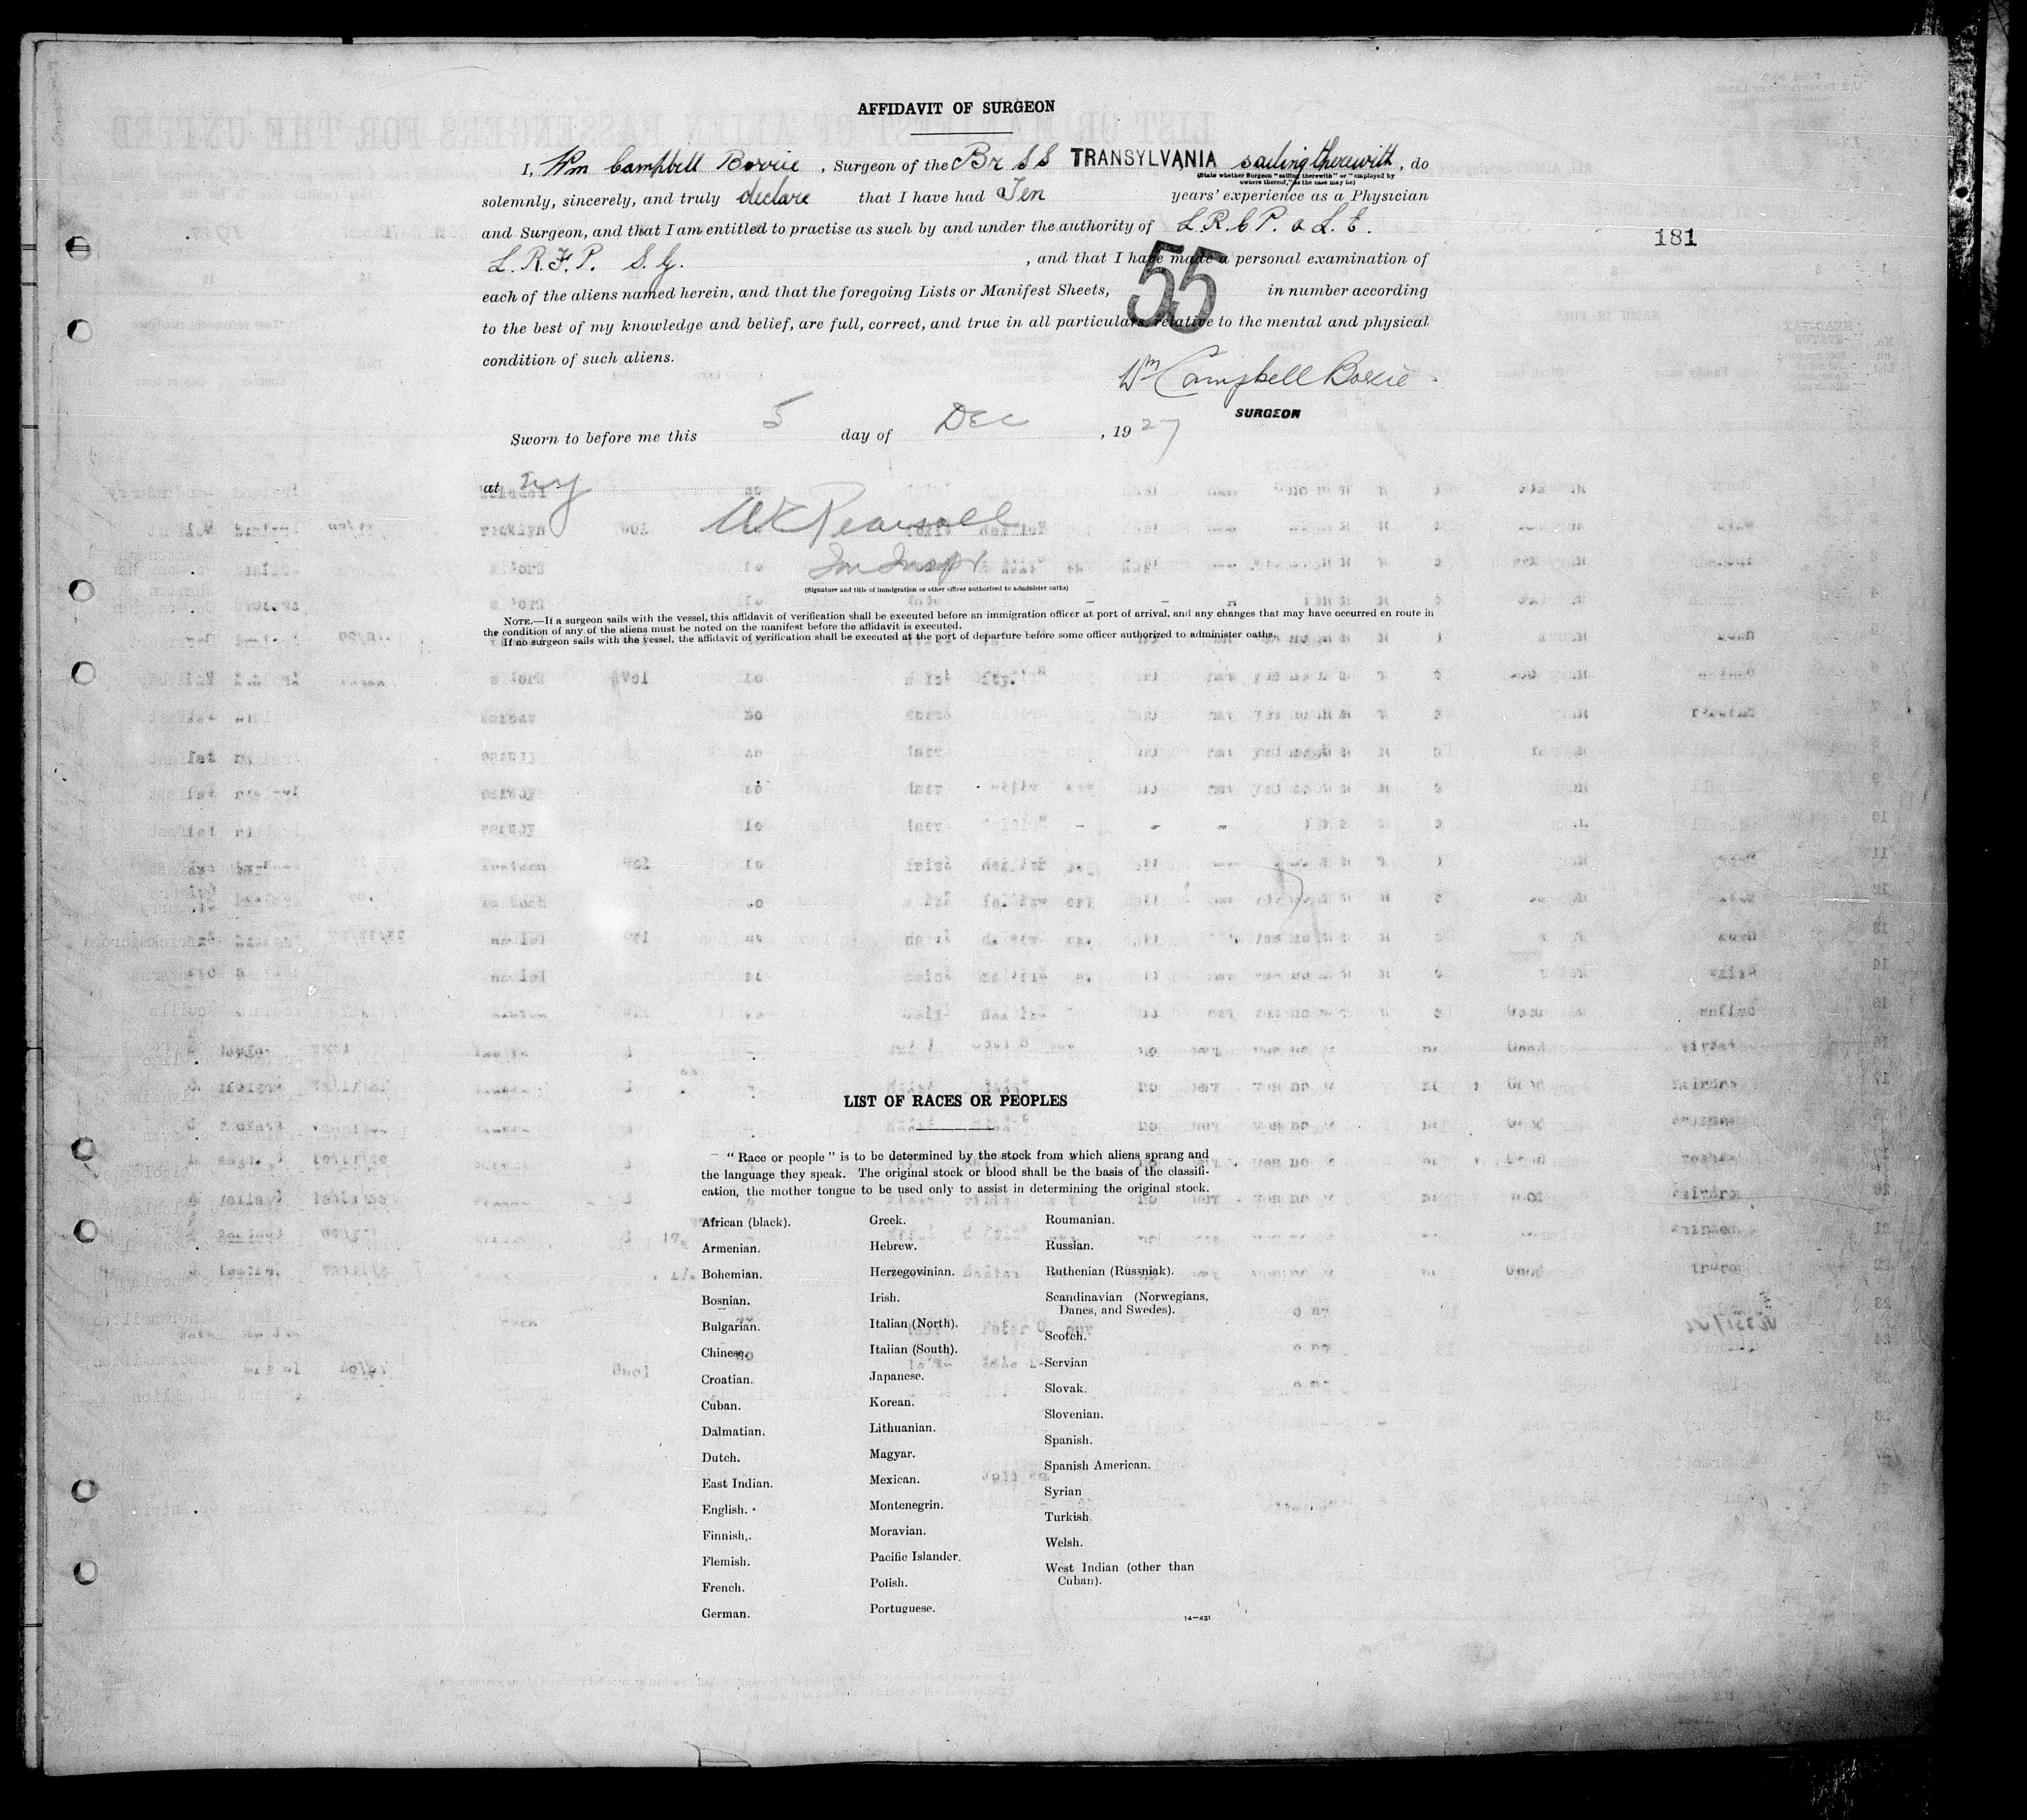 AFFIDAVIT OF SURGEON
I, Wm Campbell Borrie, Surgeon of the Br SS TRANSYLVANIA sailing therewith, do
(State whether Surgeon "sailing therewith" or "employed by
owners thereof," as the case may be)
solemnly, sincerely, and truly declare that I have had Ten years' experience as a Physician
and Surgeon, and that I am entitled to practise as such by and under the authority of L.R.C.P. & L.E.
181
L.R.F.P. S.G. , and that I have made a personal examination of
each of the aliens named herein, and that the foregoing Lists or Manifest Sheets, 55 in number according
to the best of my knowledge and belief, are full, correct, and true in all particulars relative to the mental and physical
condition of such aliens.
Wm Campbell Borrie
SURGEON
Sworn to before me this 5 day of Dec , 1927
at NY
Pearsall
Im Inspr
(Signature and title of immigration or other officer authorized to administer oaths)
NOTE.—If a surgeon sails with the vessel, this affidavit of verification shall be executed before an immigration officer at port of arrival, and any changes that may have occurred en route in
the condition of any of the aliens must be noted on the manifest before the affidavit is executed.
If no surgeon sails with the vessel, the affidavit of verification shall be executed at the port of departure before some officer authorized to administer oaths.
LIST OF RACES OR PEOPLES
"Race or people" is to be determined by the stock from which aliens sprang and
the language they speak. The original stock or blood shall be the basis of the classifi-
cation, the mother tongue to be used only to assist in determining the original stock.
African (black).
Armenian.
Bohemian.
Bosnian.
Bulgarian.
Chinese.
Croatian.
Cuban.
Dalmatian.
Dutch.
East Indian.
English.
Finnish.
Flemish.
French.
German.
Greek.
Hebrew.
Herzegovinian.
Irish.
Italian (North).
Italian (South).
Japanese.
Korean.
Lithuanian.
Magyar.
Mexican.
Montenegrin.
Moravian.
Pacific Islander.
Polish.
Portuguese.
Roumanian.
Russian.
Ruthenian (Russniak).
Scandinavian (Norwegians,
Danes, and Swedes).
Scotch.
Servian
Slovak.
Slovenian.
Spanish.
Spanish American.
Syrian
Turkish.
Welsh.
West Indian (other than
Cuban).
14—431